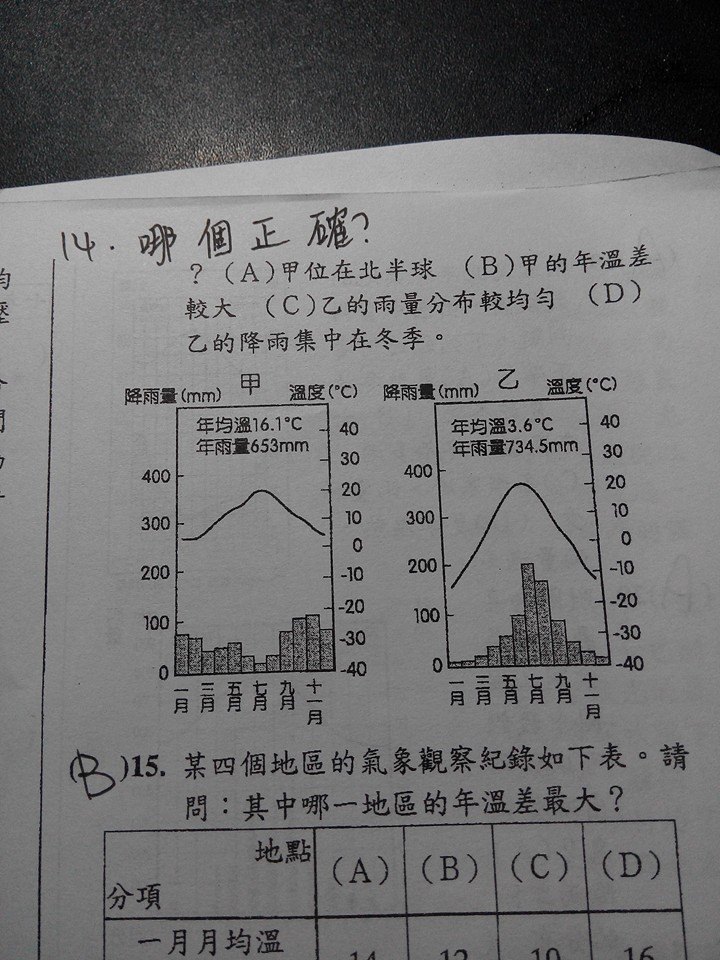 14. 哪個正確?
？（A）甲位在北半球 （B）甲的年溫差
較大 （C）乙的雨量分布較均勻 （D）
乙的降雨集中在冬季。
降雨量(mm) 甲 溫度(°C)
年均溫16.1°C
年雨量653mm
400
300
200
100
0
40
30
20
10
0
-10
-20
-30
-40
一月 三月 五月 七月 九月 十一月
降雨量(mm) 乙 溫度(°C)
年均溫3.6°C
年雨量734.5mm
400
300
200
100
0
40
30
20
10
0
-10
-20
-30
-40
一月 三月 五月 七月 九月 十一月
(B)15. 某四個地區的氣象觀察紀錄如下表。請
問：其中哪一地區的年溫差最大？
地點 （A） （B） （C） （D）
分項
一月月均溫 14 12 10 16